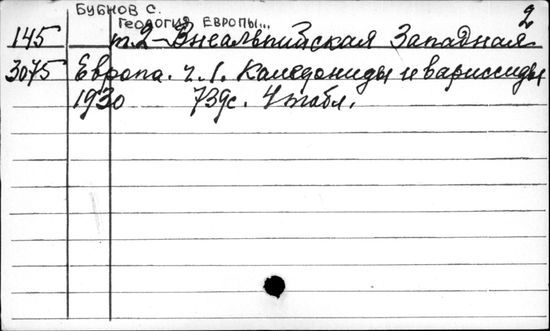 БУБНОВ С.
ГЕОЛОГИЯ ЕВРОПЫ... 2
145 т.2 - Внеальпийская Западная
3075 Европа. ч.1. Каледониды и вариссиды
1930 739с. 4 табл.